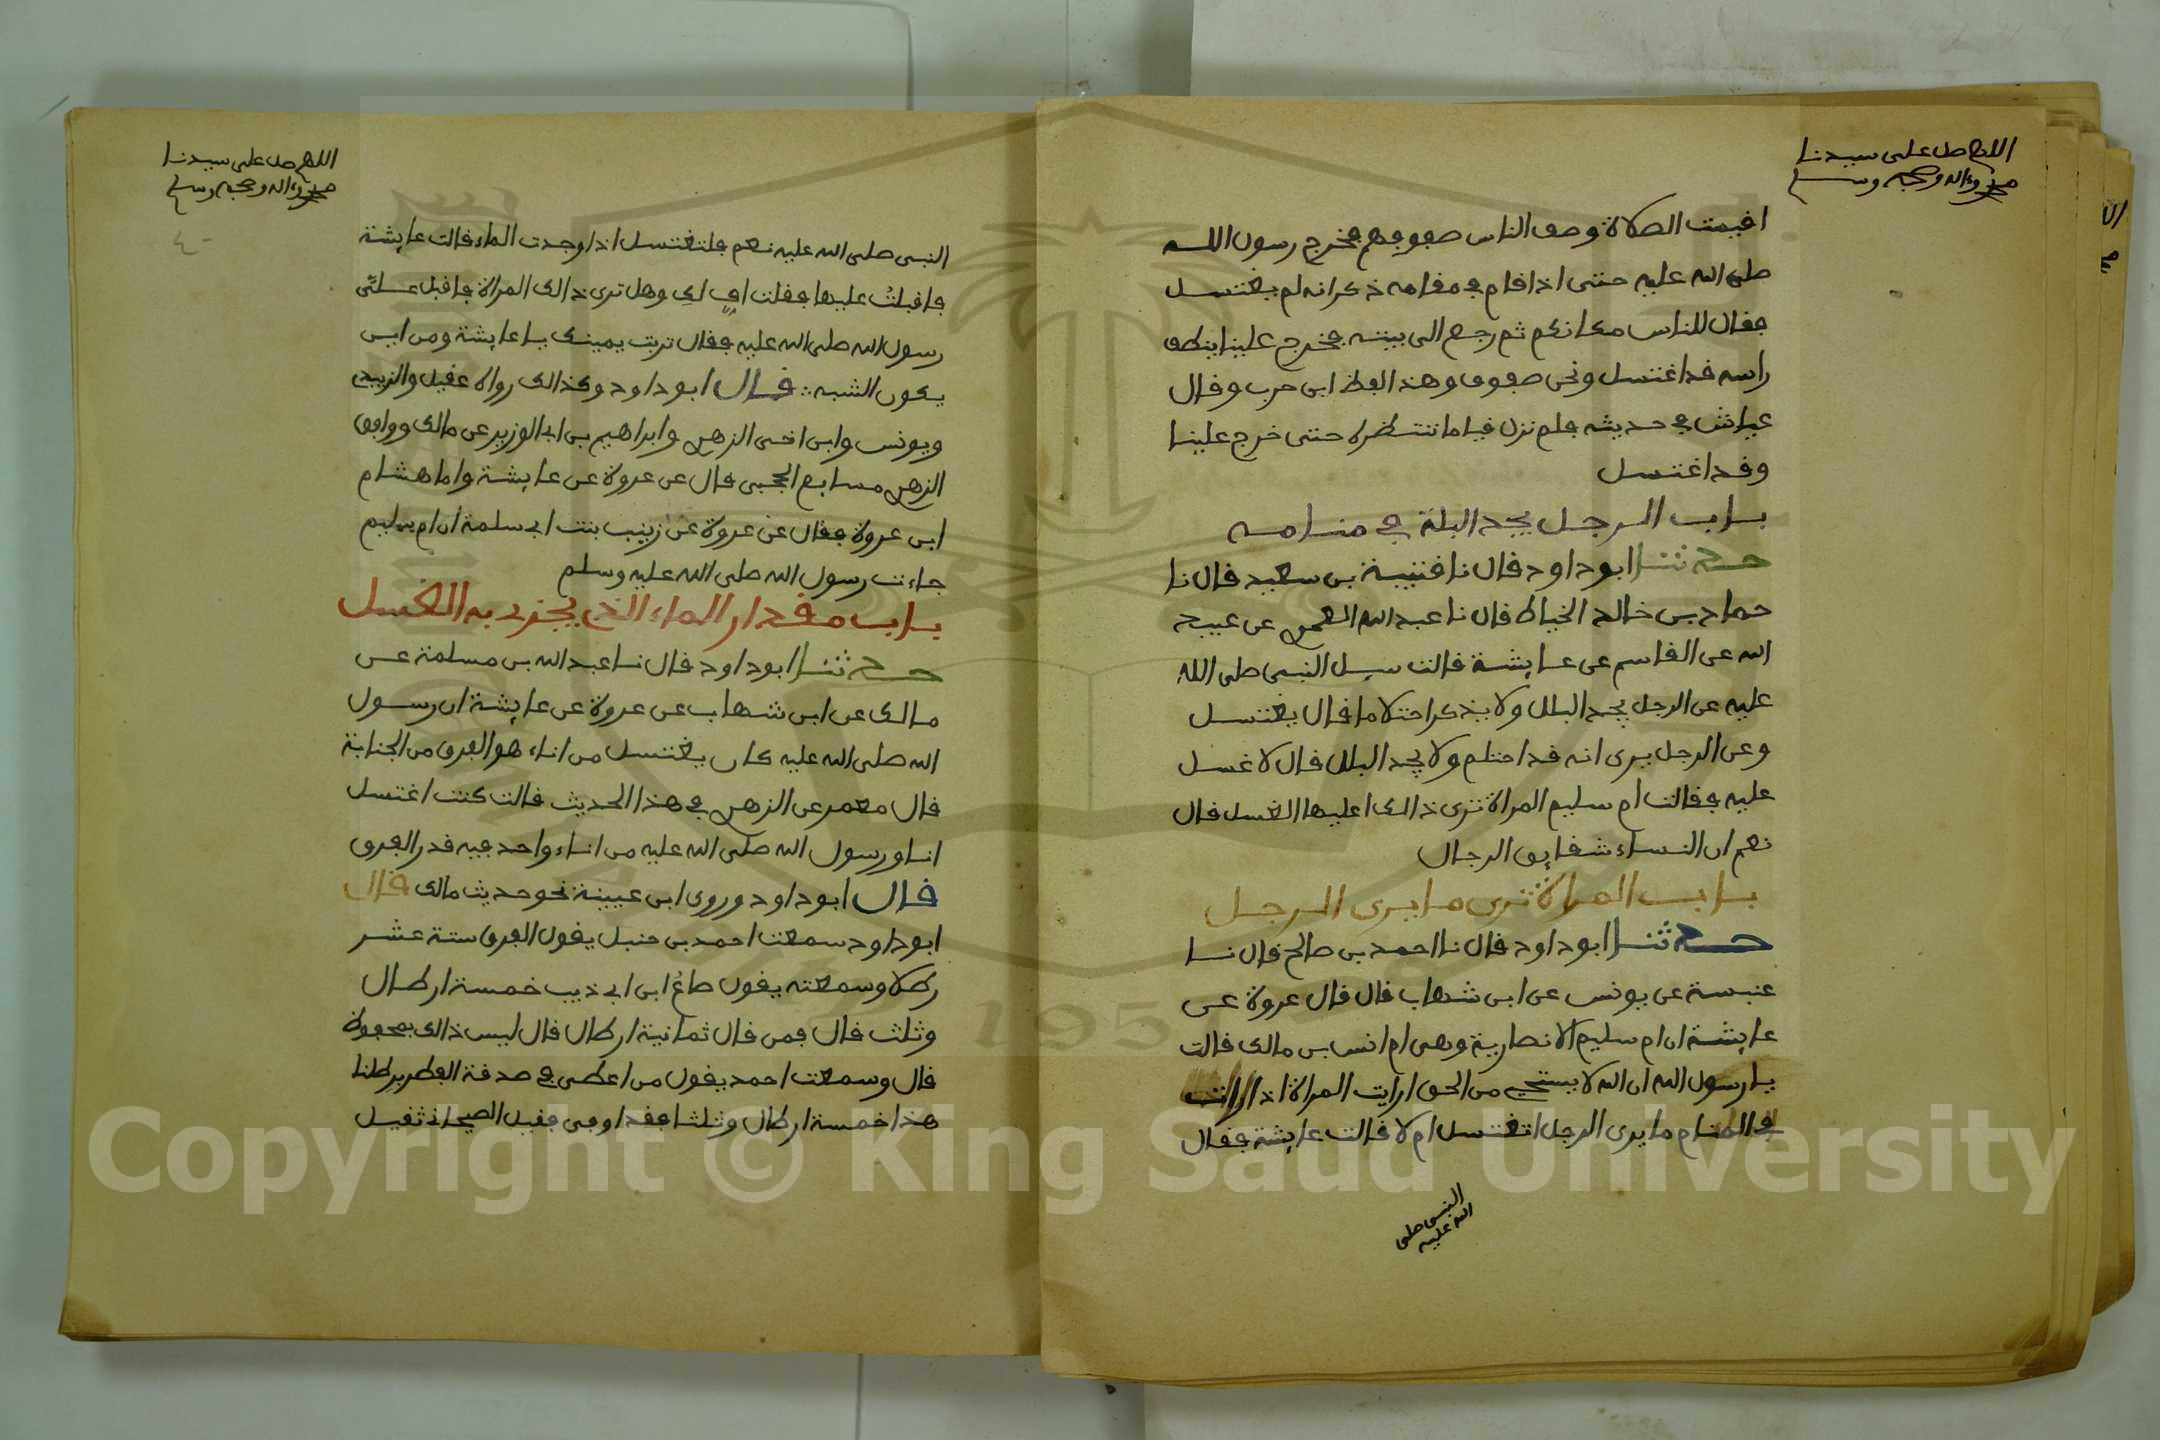 اللهم صل على سيدنا
محمد وءاله وصحبه وسلم
افيمت الصلاة وصف الناس صفوفهم فخرج رسول الله
صلى الله عليه حتى اذا فام في مفامه ذكر انه لم يغتسل
ففال للناس مكانكم ثم رجع الى بيته فخرج علينا ينطف
راسه فد اغتسل ونحن صفوف وهذا لفظ ابن حرب وفال
عياش في حديثه فلم نزل فياما ننتظره حتى خرج علينا
وفد اغتسل
باب الرجل يجد البلة في منامه
حدثنا ابو داود فال نا فتيبة بن سعيد فال نا
حماد بن خالد الخياط فال نا عبد الله العمري عن عبيد
الله عن الفاسم عن عايشة فالت سيل النبي صلى الله
عليه عن الرجل يجد البلل ولا يذكر احتلاما فال يغتسل
وعن الرجل يرى انه فد احتلم ولا يجد البلل فال لا غسل
عليه ففالت ام سليم المراة ترى ذالك اعليها الغسل فال
نعم ان النساء شفايق الرجال
باب المراة ترى ما يرى الرجل
حدثنا ابو داود فال نا احمد بن صالح فال نا
عنبسة عن يونس عن ابن شهاب فال فال عروة عن
عايشة ان ام سليم الانصارية وهي ام انس بن مالك فالت
يا رسول الله ان الله لا يستحيي من الحق ارايت المراة اذا رات
في المنام ما يرى الرجل اتغتسل ام لا فالت عايشة ففال
النبي صلى
الله عليه
اللهم صل على سيدنا
محمد وءاله وصحبه وسلم
٤٠
النبي صلى الله عليه نعم فلتغتسل اذا وجدت الماء فالت عايشة
فافبلت عليها ففلت اف لك وهل ترى ذالك المراة فافبل علي
رسول الله صلى الله عليه ففال تربت يمينك يا عايشة ومن اين
يكون الشبه فال ابو داود وكذالك رواه عفيل والزبيدي
ويونس وابن اخي الزهري وابراهيم بن ابي الوزير عن مالك ووافق
الزهري مسافع الحجبي فال عن عروة عن عايشة واما هشام
ابن عروة ففال عن عروة عن زينب بنت ابي سلمة ان ام سليم
جاءت رسول الله صلى الله عليه وسلم
باب مفدار الماء الذي يجزي به الغسل
حدثنا ابو داود فال نا عبد الله بن مسلمة عن
مالك عن ابن شهاب عن عروة عن عايشة ان رسول
الله صلى الله عليه كان يغتسل من اناء هو الفرق من الجنابة
فال معمر عن الزهري في هذا الحديث فالت كنت اغتسل
انا ورسول الله صلى الله عليه من اناء واحد فيه فدر الفرق
فال ابو داود وروى ابن عيينة نحو حديث مالك فال
ابو داود سمعت احمد بن حنبل يفول الفرق ستة عشر
رطلا وسمعته يفول صاع ابن ابي ذيب خمسة ارطال
وثلث فال فمن فال ثمانية ارطال فال ليس ذالك بمحفوظ
فال وسمعت احمد يفول من اعطى في صدفة الفطر برطلنا
هذا خمسة ارطال وثلثا ففد اوفى ففيل الصيحاني ثفيل
Copyright © King Saud University
1957